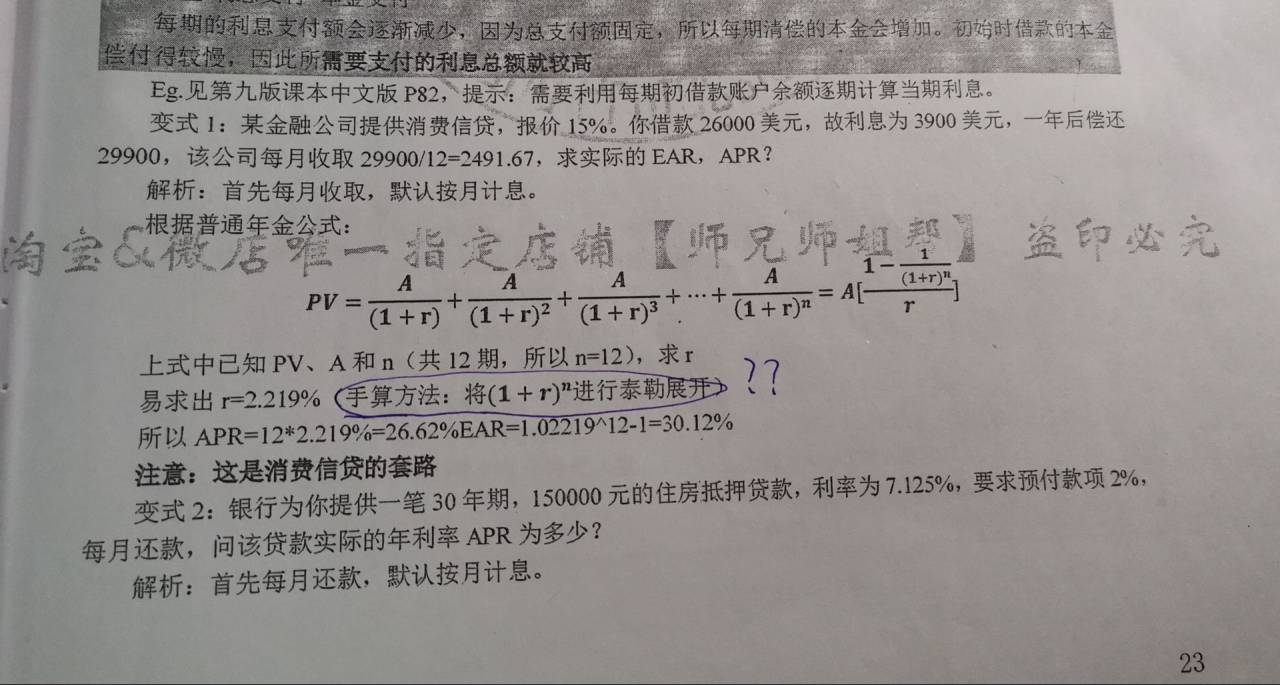 每期的利息支付额会逐渐减少，因为总支付额固定，所以每期清偿的本金会增加。初始时借款的本金
偿付得较慢，因此所需要支付的利息总额就较高
Eg.见第九版课本中文版 P82，提示：需要利用每期初借款账户余额逐期计算当期利息。
变式 1：某金融公司提供消费信贷，报价 15%。你借款 26000 美元，故利息为 3900 美元，一年后偿还
29900，该公司每月收取 29900/12=2491.67，求实际的 EAR，APR？
解析：首先每月收取，默认按月计息。
根据普通年金公式：
淘宝&微店唯一指定店铺【师兄师姐帮】 盗印必究
PV = A/(1 + r) + A/(1 + r)² + A/(1 + r)³ + ⋯ + A/(1 + r)ⁿ = A[(1 − 1/(1+r)ⁿ)/r]
上式中已知 PV、A 和 n（共 12 期，所以 n=12），求 r
易求出 r=2.219%（手算方法：将(1 + r)ⁿ进行泰勒展开） ??
所以 APR=12*2.219%=26.62%EAR=1.02219^12-1=30.12%
注意：这是消费信贷的套路
变式 2：银行为你提供一笔 30 年期，150000 元的住房抵押贷款，利率为 7.125%，要求预付款项 2%，
每月还款，问该贷款实际的年利率 APR 为多少？
解析：首先每月还款，默认按月计息。
23